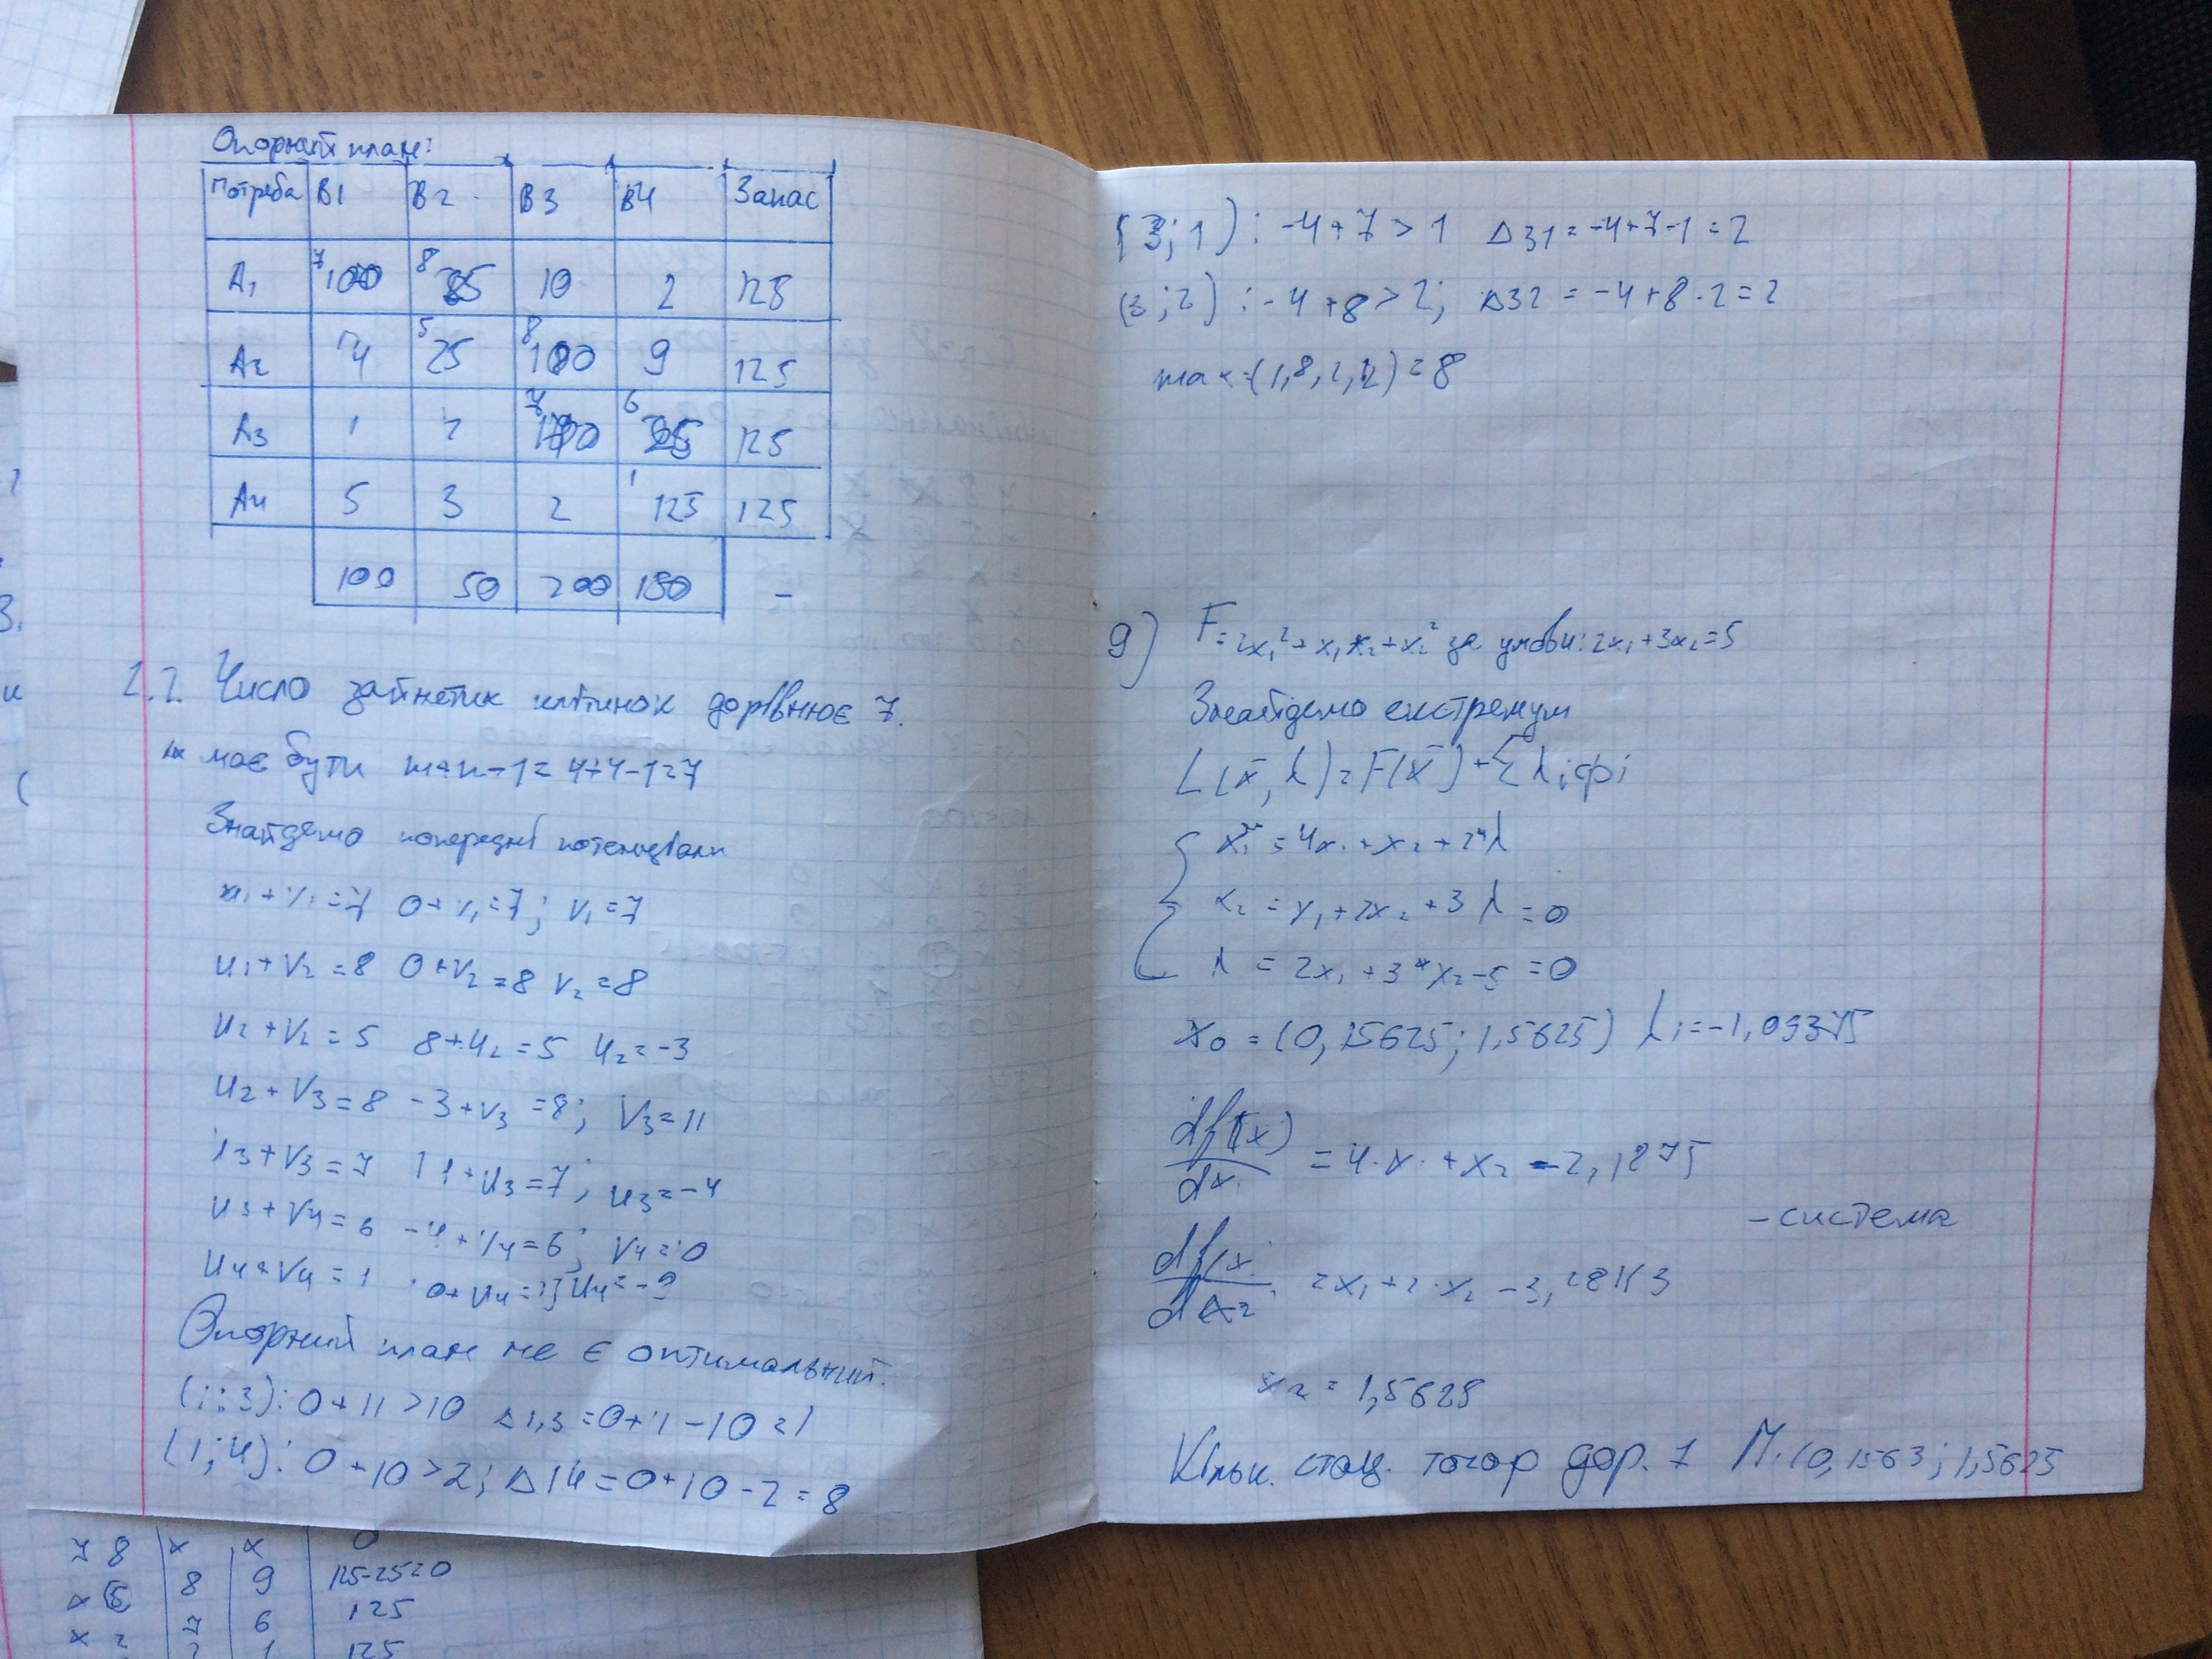 Опорний план:
Потреба B1 B2 B3 B4 Запас
A1 7 100 8 25 10 2 125
A2 4 5 25 8 100 9 125
A3 1 2 7 100 6 25 125
A4 5 3 2 1 125 125
100 50 200 150 -
2.2. Число зайнятих клітинок дорівнює 7.
має бути m+n-1=4+4-1=7
Знайдемо попередні потенціали
u1+v1=7 0+v1=7; v1=7
u1+v2=8 0+v2=8 v2=8
u2+v2=5 8+u2=5 u2=-3
u2+v3=8 -3+v3=8; v3=11
u3+v3=7 11+u3=7; u3=-4
u3+v4=6 -4+v4=6; v4=10
u4+v4=1 u4=-9
Опорний план не є оптимальний.
(1;3): 0+11>10 Δ1,3=0+11-10=1
(1;4): 0+10>2; Δ14=0+10-2=8
7 8 x x 0
x 5 8 9 125-25=0
x 2 7 6 125
2 1 125
(3;1): -4+7>1 Δ31=-4+7-1=2
(3;2): -4+8>2; Δ32=-4+8-2=2
max=(1,8,2,2)=8
9) F=2x₁²+x₁x₂+x₂² за умови: 2x₁+3x₂=5
Знайдемо екстремум
L(x̄,λ)=F(x̄)+Σλiφi
x₁=4x₁+x₂+2*λ
x₂=x₁+2x₂+3λ=0
λ=2x₁+3*x₂-5=0
x0=(0,15625; 1,5625) λ1=-1,09375
df(x)/dx₁=4·x₁+x₂-2,1875
-система
df(x)/dx₂ =x₁+2·x₂-3,2813
x₂=1,5625
Кільк. стац. точок дор. 1 M₁(0,1563; 1,5625